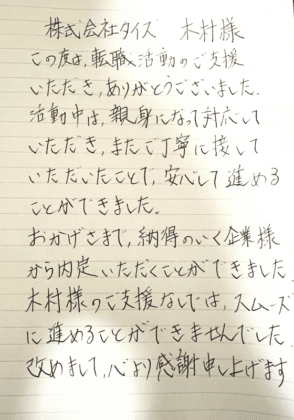 株式会社タイズ 木村様
この度は、転職活動のご支援
いただき、ありがとうございました。
活動中は、親身になって対応して
いただき、またご丁寧に接して
いただいたことで、安心して進める
ことができました。
おかげさまで、納得のいく企業様
から内定いただくことができました。
木村様のご支援なしでは、スムーズ
に進めることができませんでした。
改めまして、心より感謝申し上げます